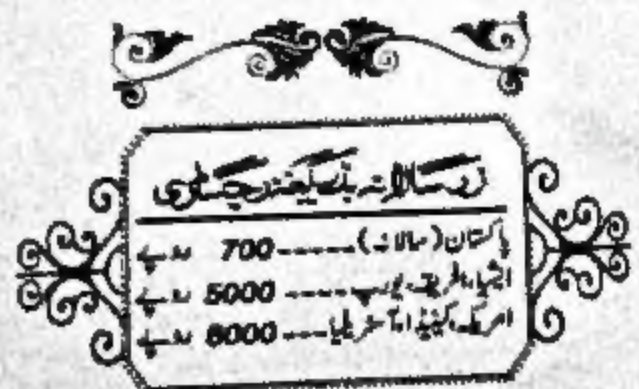 زرسالانہ بذریعہ رجسٹری
پاکستان (سالانہ) ----- 700 روپے
ایشیاء، افریقہ، یورپ ----- 5000 روپے
امریکہ، کینیڈا، آسٹریلیا --- 6000 روپے